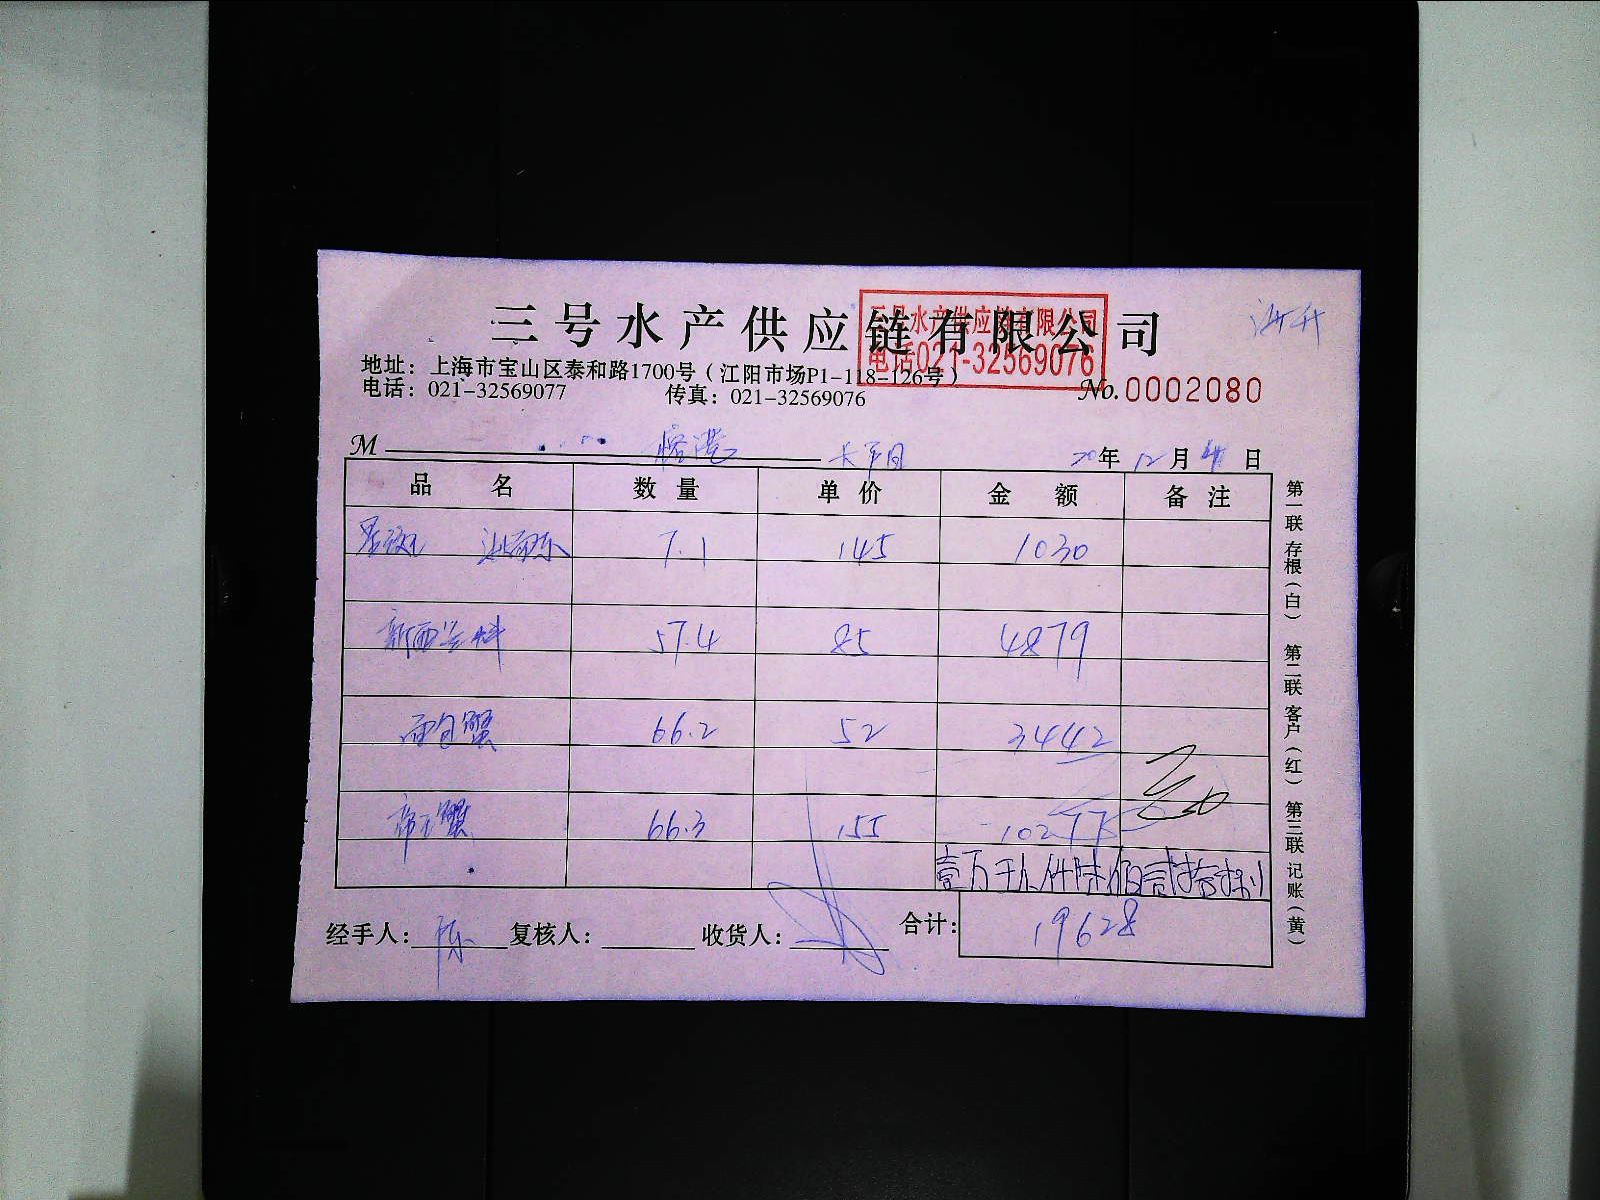 三号水产供应链有限公司
三号水产供应链有限公司
电话021-32569076
地址：上海市宝山区泰和路1700号（江阳市场P1-118-126号）
电话：021-32569077 传真：021-32569076
No.0002080
M 榕港 20年12月4日
品名 数量 单价 金额 备注
7.1 145 1030
新西兰 57.4 85 4879
面包蟹 66.2 52 3442
帝王蟹 66.3 155 10277
经手人：陈 复核人： 收货人： 合计：19628
第一联存根（白） 第二联客户（红） 第三联记账（黄）